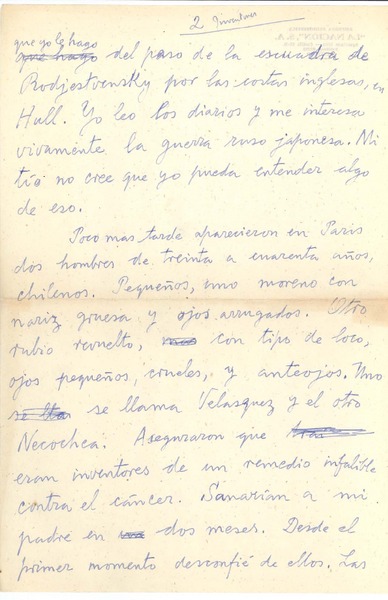 2 Inventores
"LA NACION", S.A.
que yo le hago
que hago del paso de la escuadra de
Rodjestvensky por las costas inglesas, en
Hull. Yo leo los diarios y me interesa
vivamente la guerra ruso japonesa. Mi
tío no cree que yo pueda entender algo
de eso.
Poco mas tarde aparecieron en Paris
dos hombres de treinta a cuarenta años,
chilenos. Pequeños, uno moreno con
nariz gruesa y ojos arrugados. Otro
rubio revuelto, con tipo de loco,
ojos pequeños, crueles, y anteojos. Uno
se llama Velasquez y el otro
Necochea. Aseguraron que
eran inventores de un remedio infalible
contra el cáncer. Sanarían a mi
padre en dos meses. Desde el
primer momento desconfié de ellos. Las